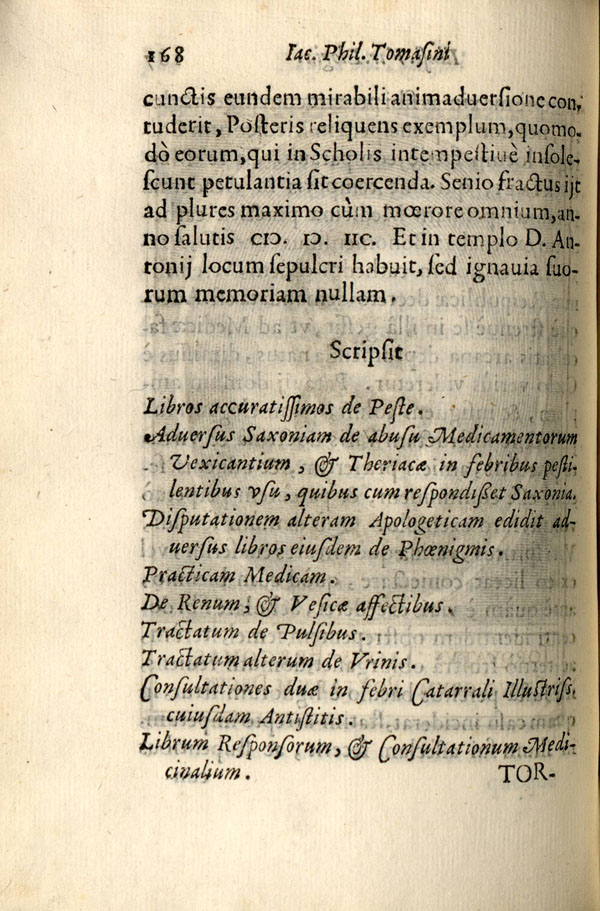 168 Iac. Phil. Tomasini
cunctis eundem mirabili animaduersione con,
tuderit, Posteris reliquens exemplum, quomo.
dò eorum, qui in Scholis intempestiuè insole-
scunt petulantia sit coercenda. Senio fractus ijt
ad plures maximo cùm mœrore omnium, an-
no salutis CIↃ. IↃ. IIC. Et in templo D. An-
tonij locum sepulcri habuit, sed ignauia suo-
rum memoriam nullam.
Scripsit
Libros accuratissimos de Peste.
Aduersus Saxoniam de abusu Medicamentorum
Vexicantium, & Theriacæ in febribus pesti-
lentibus vsu, quibus cum respondisset Saxonia.
Disputationem alteram Apologeticam edidit ad-
uersus libros eiusdem de Phœnigmis.
Practicam Medicam.
De Renum, & Vesicæ affectibus.
Tractatum de Pulsibus.
Tractatum alterum de Vrinis.
Consultationes duæ in febri Catarrali Illustriss.
cuiusdam Antistitis.
Librum Responsorum, & Consultationum Medi-
cinalium. TOR-